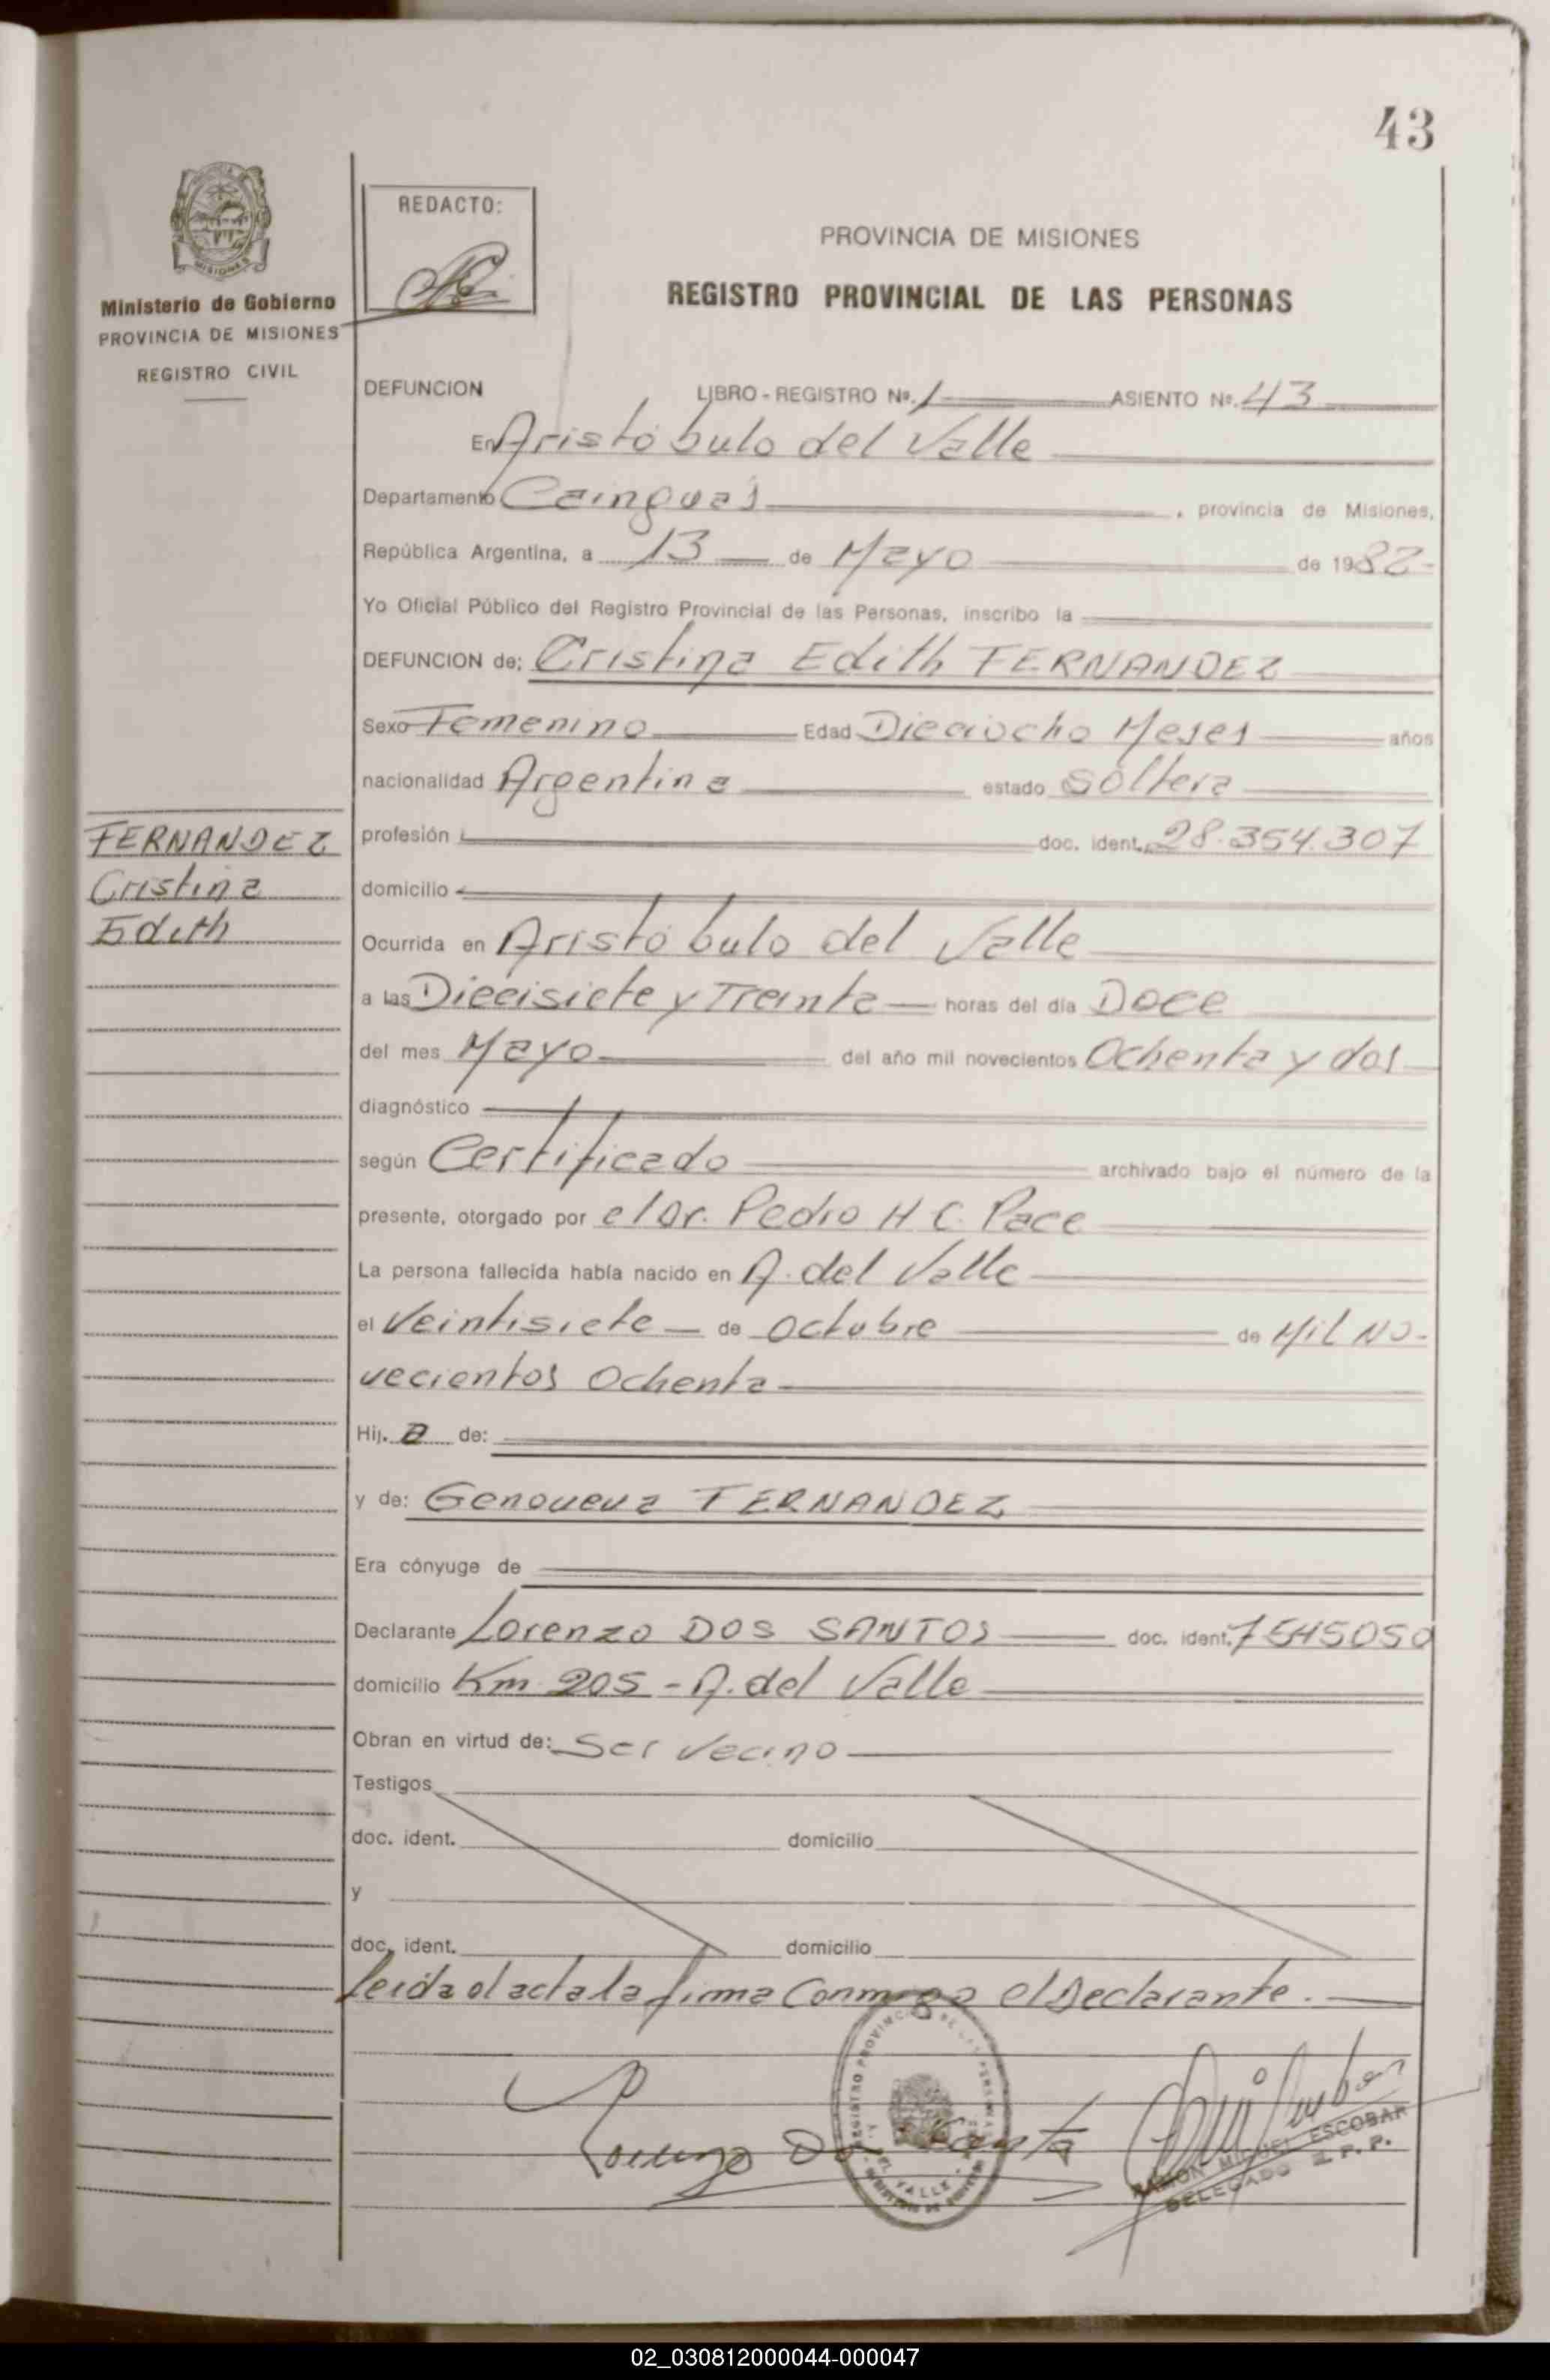 43
REDACTO:
MISIONES
Ministerio de Gobierno
PROVINCIA DE MISIONES
REGISTRO CIVIL
PROVINCIA DE MISIONES
REGISTRO PROVINCIAL DE LAS PERSONAS
DEFUNCION LIBRO - REGISTRO Nº. 1 ASIENTO Nº. 43
En Aristóbulo del Valle
Departamento Cainguás , provincia de Misiones,
República Argentina, a 13 de Mayo de 1982-
Yo Oficial Público del Registro Provincial de las Personas, inscribo la
DEFUNCION de: Cristina Edith FERNANDEZ
Sexo Femenino Edad Dieciocho Meses años
nacionalidad Argentina estado soltera
FERNANDEZ
Cristina
Edith
profesión doc. ident. 28.354.307
domicilio
Ocurrida en Aristóbulo del Valle
a las Diecisiete y Treinta horas del día Doce
del mes Mayo del año mil novecientos Ochenta y dos
diagnóstico
según Certificado archivado bajo el número de la
presente, otorgado por el Dr. Pedro H. C. Pace
La persona fallecida había nacido en A. del Valle
el Veintisiete de Octubre de Mil No-
vecientos Ochenta
Hij. a de:
y de: Genoveva FERNANDEZ
Era cónyuge de
Declarante Lorenzo DOS SANTOS doc. ident. 7545050
domicilio Km 205 - A. del Valle
Obran en virtud de: Ser vecino
Testigos
doc. ident. domicilio
y
doc. ident. domicilio
Leida el acta la firma Conmigo el Declarante.
REGISTRO PROVINCIAL DE LAS PERSONAS
VALLE
RAMON MIGUEL ESCOBAR
DELEGADO R. P. P.
02_030812000044-000047